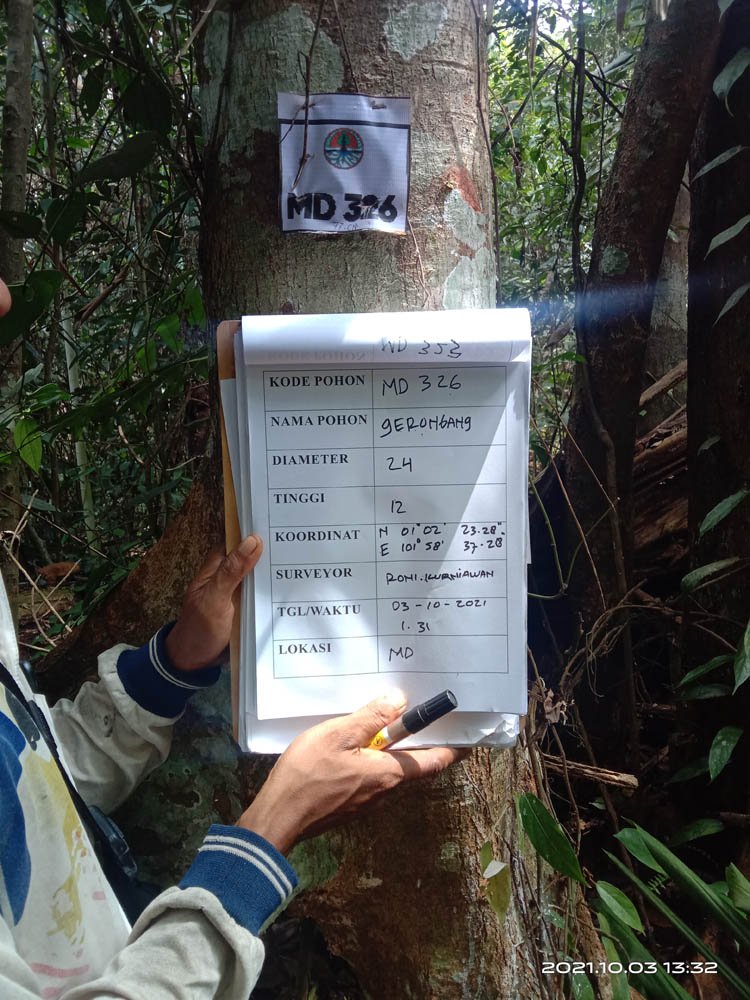 MD 326
MD 353
KODE POHON MD 326
NAMA POHON GERONGANG
DIAMETER 24
TINGGI 12
KOORDINAT N 01° 02' 23.28"
E 101° 58' 37.28
SURVEYOR RONI.KURNIAWAN
TGL/WAKTU 03-10-2021
1.31
LOKASI MD
2021.10.03 13:32